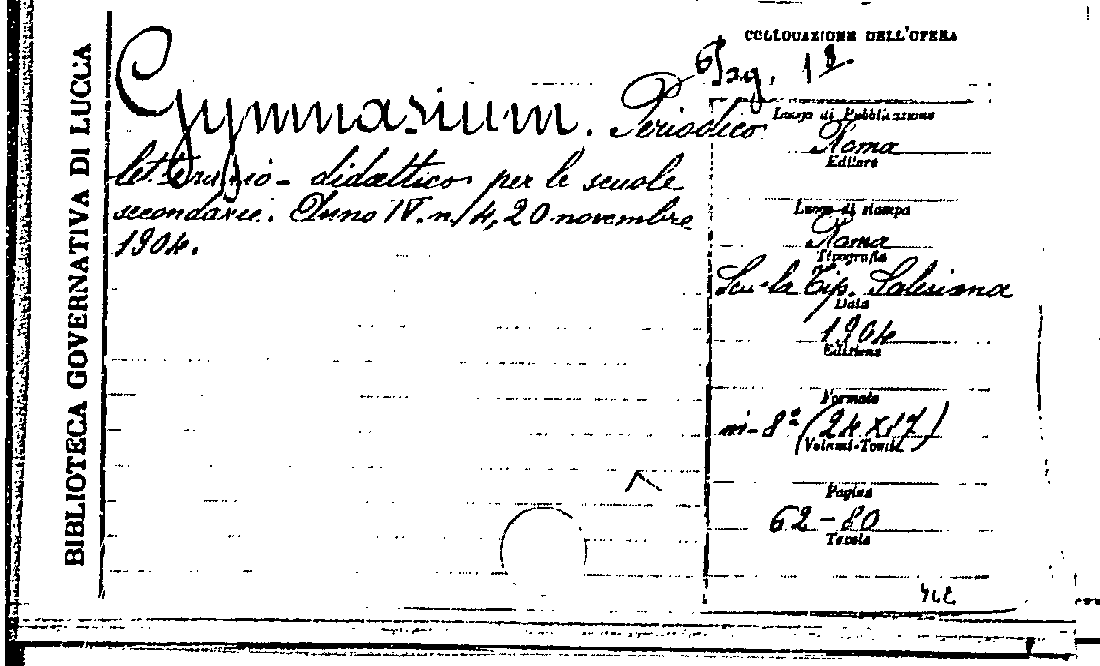 BIBLIOTECA GOVERNATIVA DI LUCCA
Gymnasium. Periodico
letterario-didattico per le scuole
secondarie. Anno IV. n. 4, 20 novembre
1904.
COLLOCAZIONE DELL'OPERA
Luogo di Pubblicazione
Roma
Editore
Luogo di stampa
Roma
Tipografia
Scuola Tip. Salesiana
Data
1904
Edizione
Formato
in-8º (24X17)
Volumi-Tomi
Pagine
62-80
Tavole